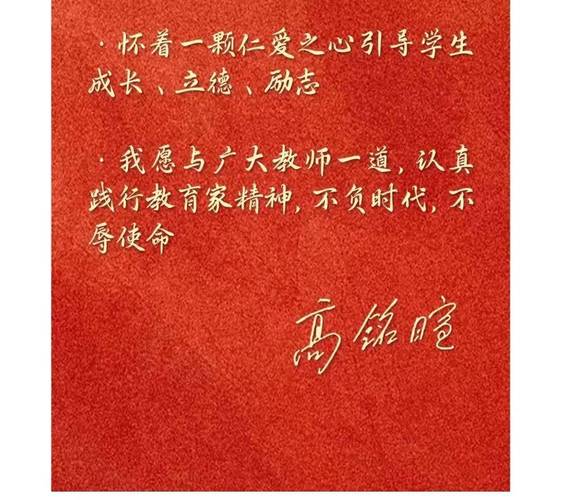 ·怀着一颗仁爱之心引导学生
成长、立德、励志
·我愿与广大教师一道,认真
践行教育家精神,不负时代,不
辱使命
高铭暄